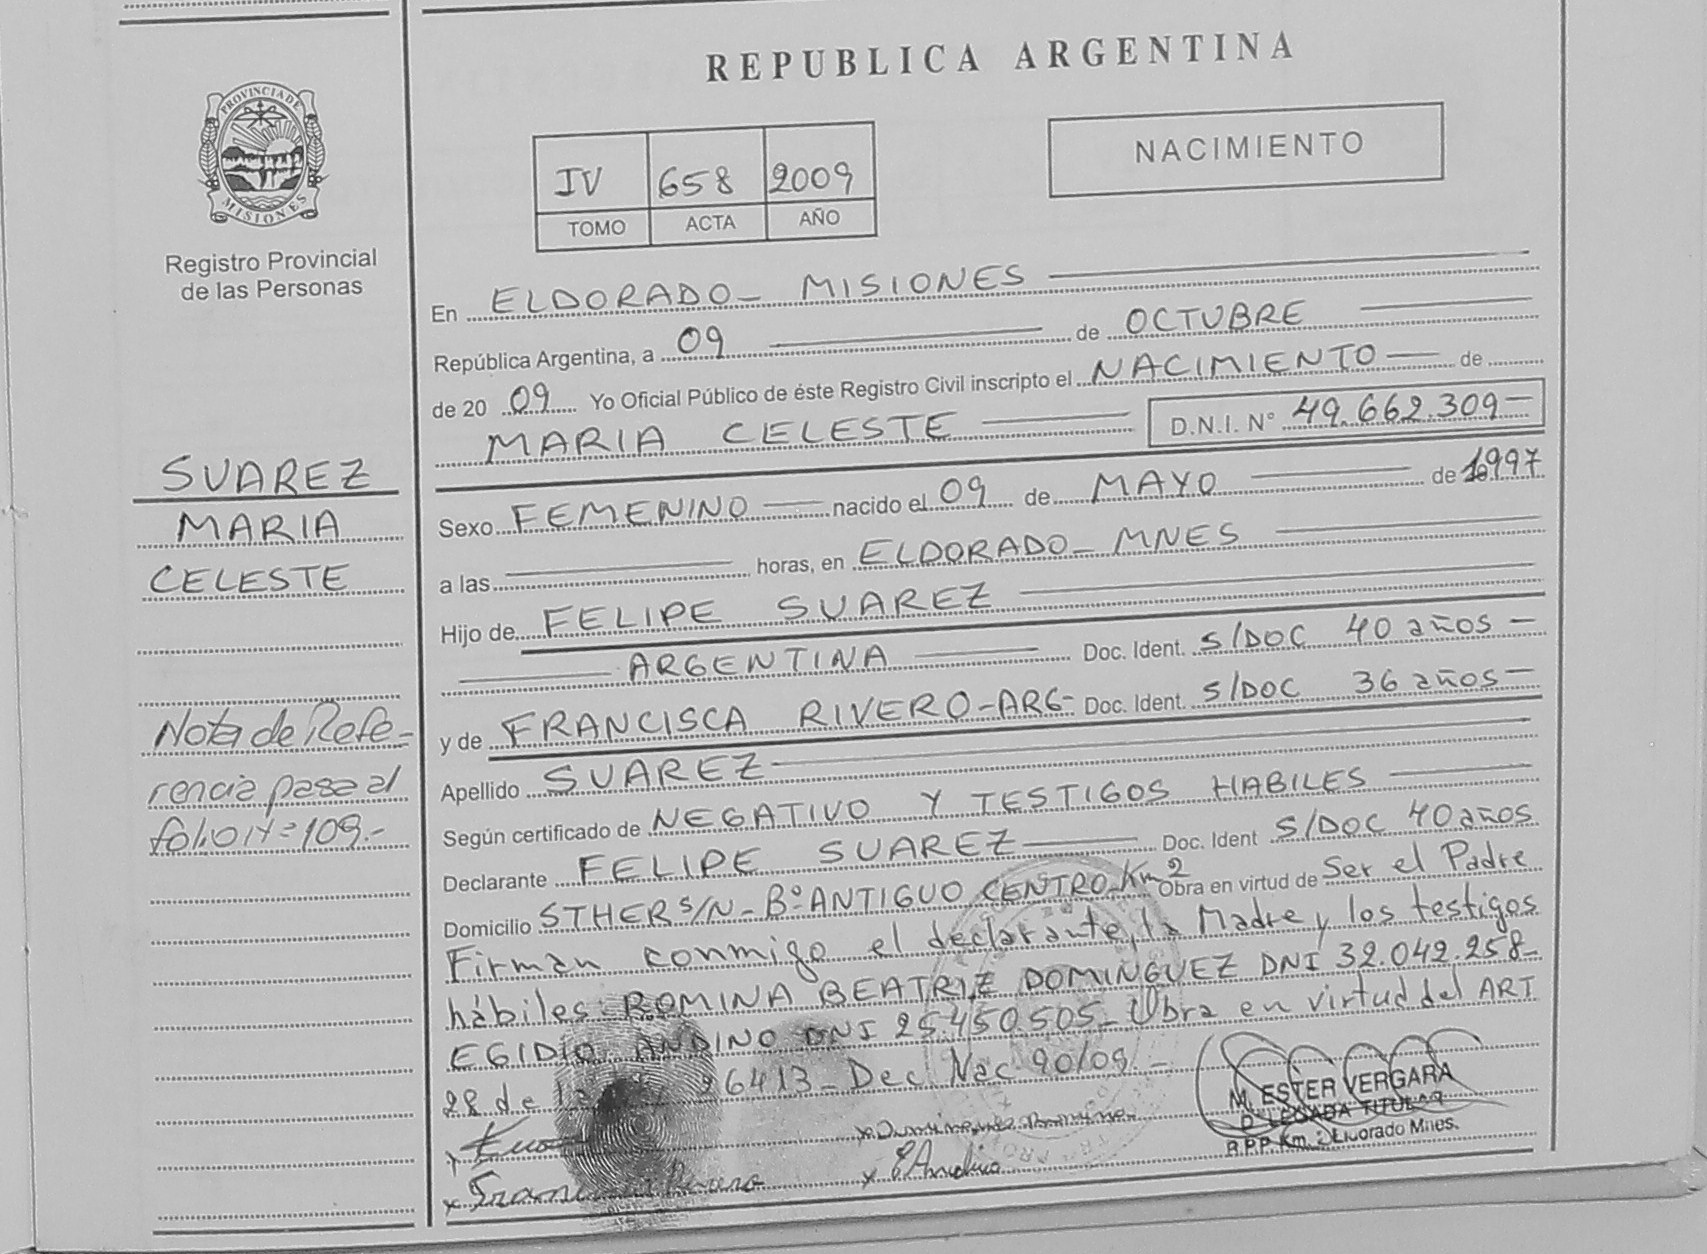 PROVINCIA DE
MISIONES
Registro Provincial
de las Personas
SUAREZ
MARIA
CELESTE
Nota de Refe-
rencia pasa al
folio Nº 109.-
REPUBLICA ARGENTINA
IV 658 2009
TOMO ACTA AÑO
NACIMIENTO
En ELDORADO - MISIONES
República Argentina, a 09 de OCTUBRE
de 20 09 Yo Oficial Público de éste Registro Civil inscripto el NACIMIENTO de
MARIA CELESTE D.N.I. Nº 49.662.309-
Sexo FEMENINO nacido el 09 de MAYO de 1997
a las horas, en ELDORADO - MNES
Hijo de FELIPE SUAREZ
ARGENTINA Doc. Ident. S/DOC 40 años -
y de FRANCISCA RIVERO-ARG- Doc. Ident. S/DOC 36 años -
Apellido SUAREZ
Según certificado de NEGATIVO Y TESTIGOS HABILES
Declarante FELIPE SUAREZ Doc. Ident S/DOC 40 años
Domicilio STHER S/N - Bº ANTIGUO CENTRO-Km 2 Obra en virtud de Ser el Padre
Firman conmigo el declarante, la Madre y los testigos
hábiles: ROMINA BEATRIZ DOMINGUEZ DNI 32.042.258-
EGIDIO ANDINO DNI 25.450.505- Obra en virtud del ART
28 de la 26413 - Dec. Nac 90/09. -
M. ESTER VERGARA
DELEGADA TITULAR
R.P.P. Km. 2 Eldorado Mnes.